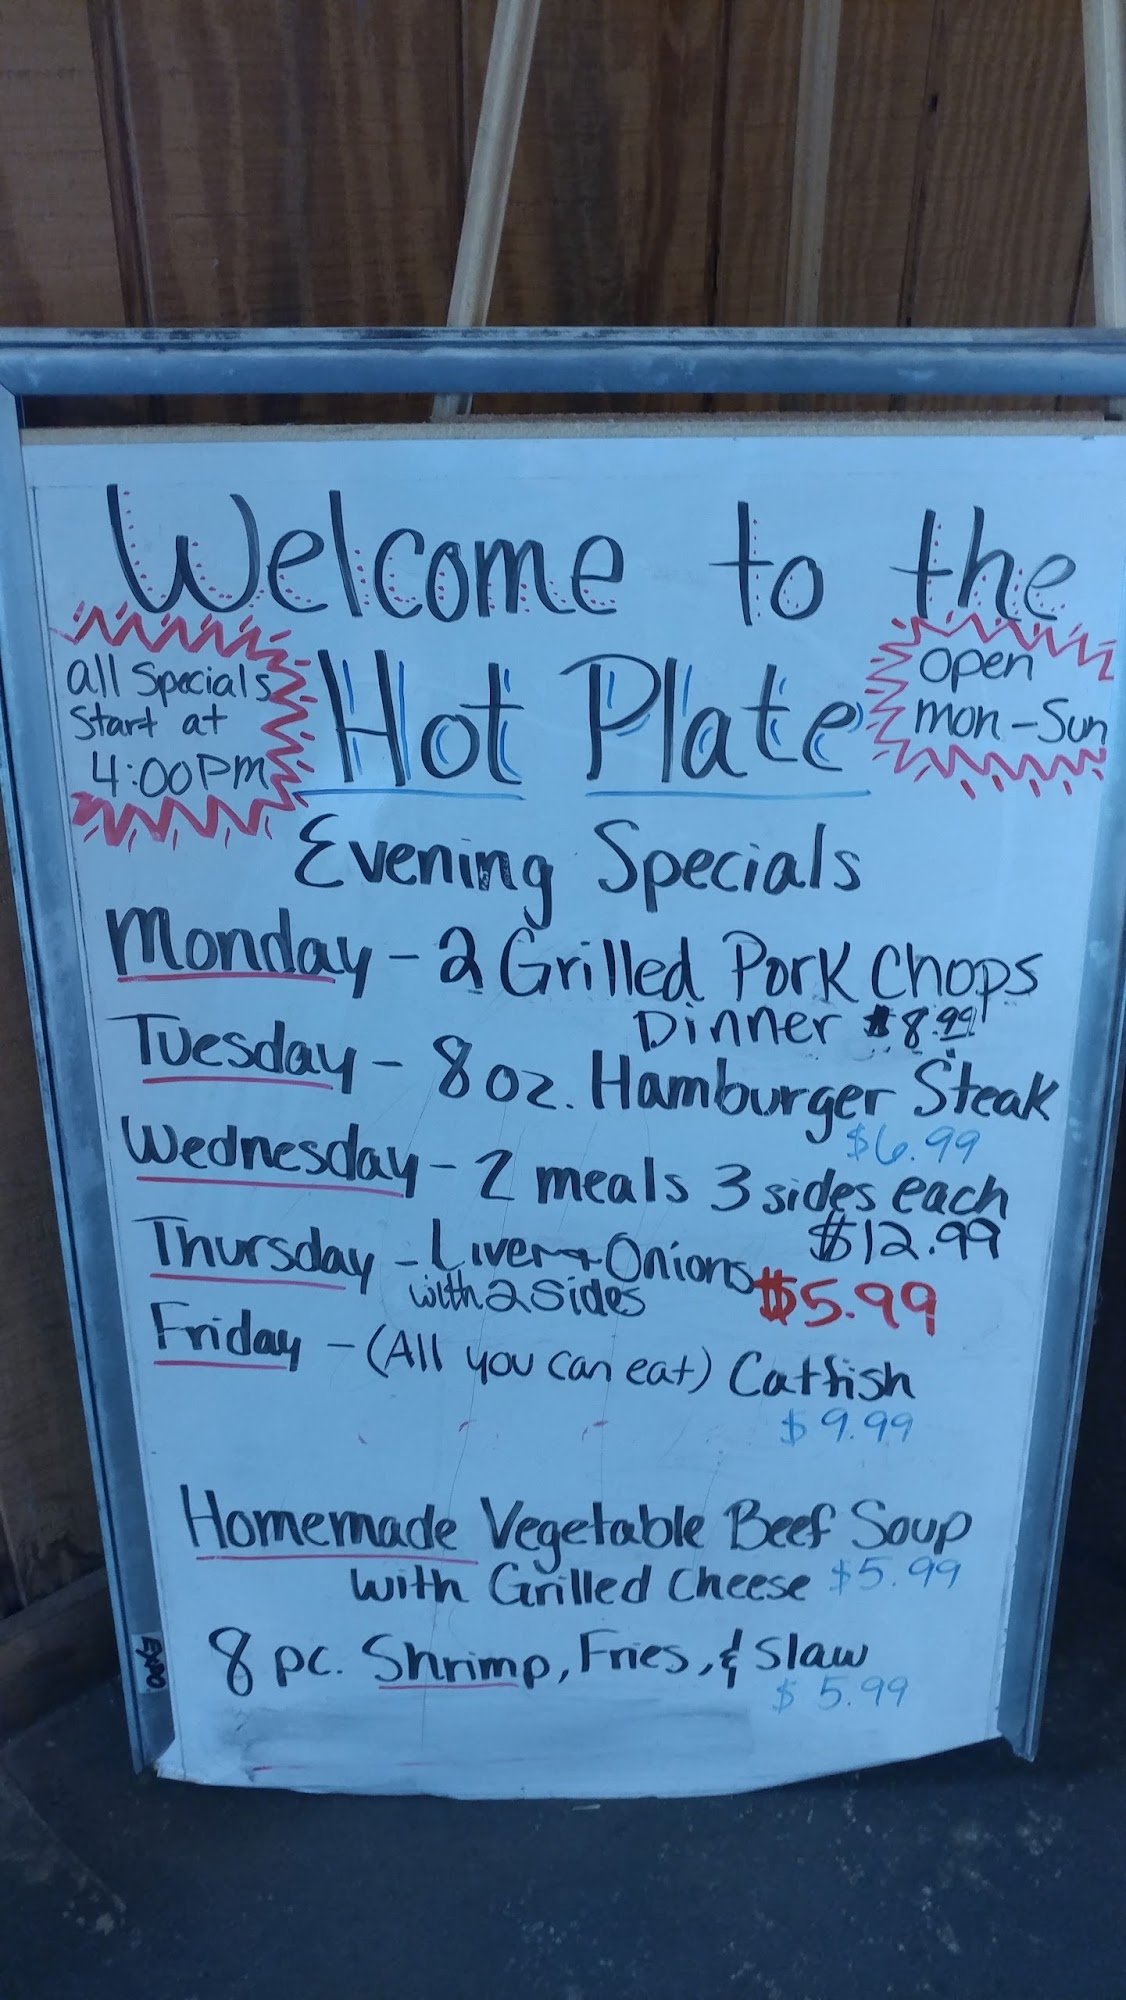 Welcome to the
all Specials
Start at
4:00PM
Hot Plate
Open
mon-Sun
Evening Specials
Monday - 2 Grilled Pork Chops
Dinner $8.99
Tuesday - 8 oz. Hamburger Steak
$6.99
Wednesday - 2 meals 3 sides each
$12.99
Thursday - Liver + Onions
with 2 Sides $5.99
Friday - (All you can eat) Catfish
$9.99
Homemade Vegetable Beef Soup
with Grilled Cheese $5.99
8 pc. Shrimp, Fries, & Slaw
$5.99
EXPO